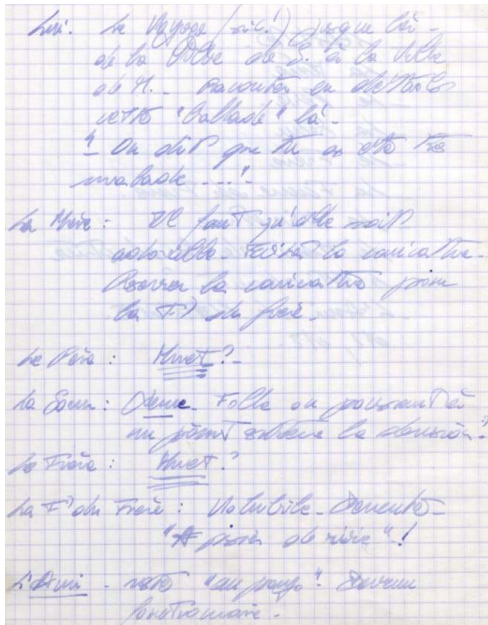 Lui: Le Voyage (sic!) jusque là -
de la Ville de S. à la Ville
de M. - raconter en détails
cette "ballade" là -
"- On dit que tu as été très
malade ---!"
La Mère: Il faut qu'elle soit
adorable. Éviter la caricature.
Réserver la caricature pour
la F. du frère.
Le Père: Muet? -
La Soeur: . Folle ou passant à
un
Le Frère: Muet?
La F. du Frère: Volubile -
" de rire"!
L'Ami - resté "au pays".
fonctionnaire.